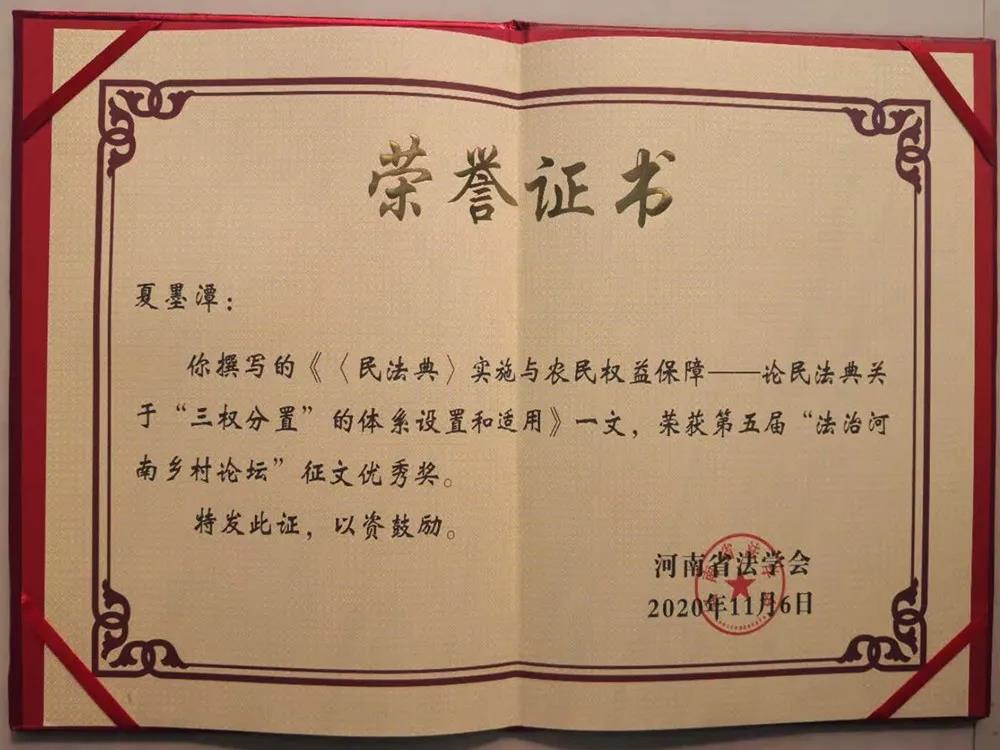 荣誉证书
夏墨潭：
你撰写的《〈民法典〉实施与农民权益保障——论民法典关
于“三权分置”的体系设置和适用》一文，荣获第五届“法治河
南乡村论坛”征文优秀奖。
特发此证，以资鼓励。
河南省法学会
2020年11月6日